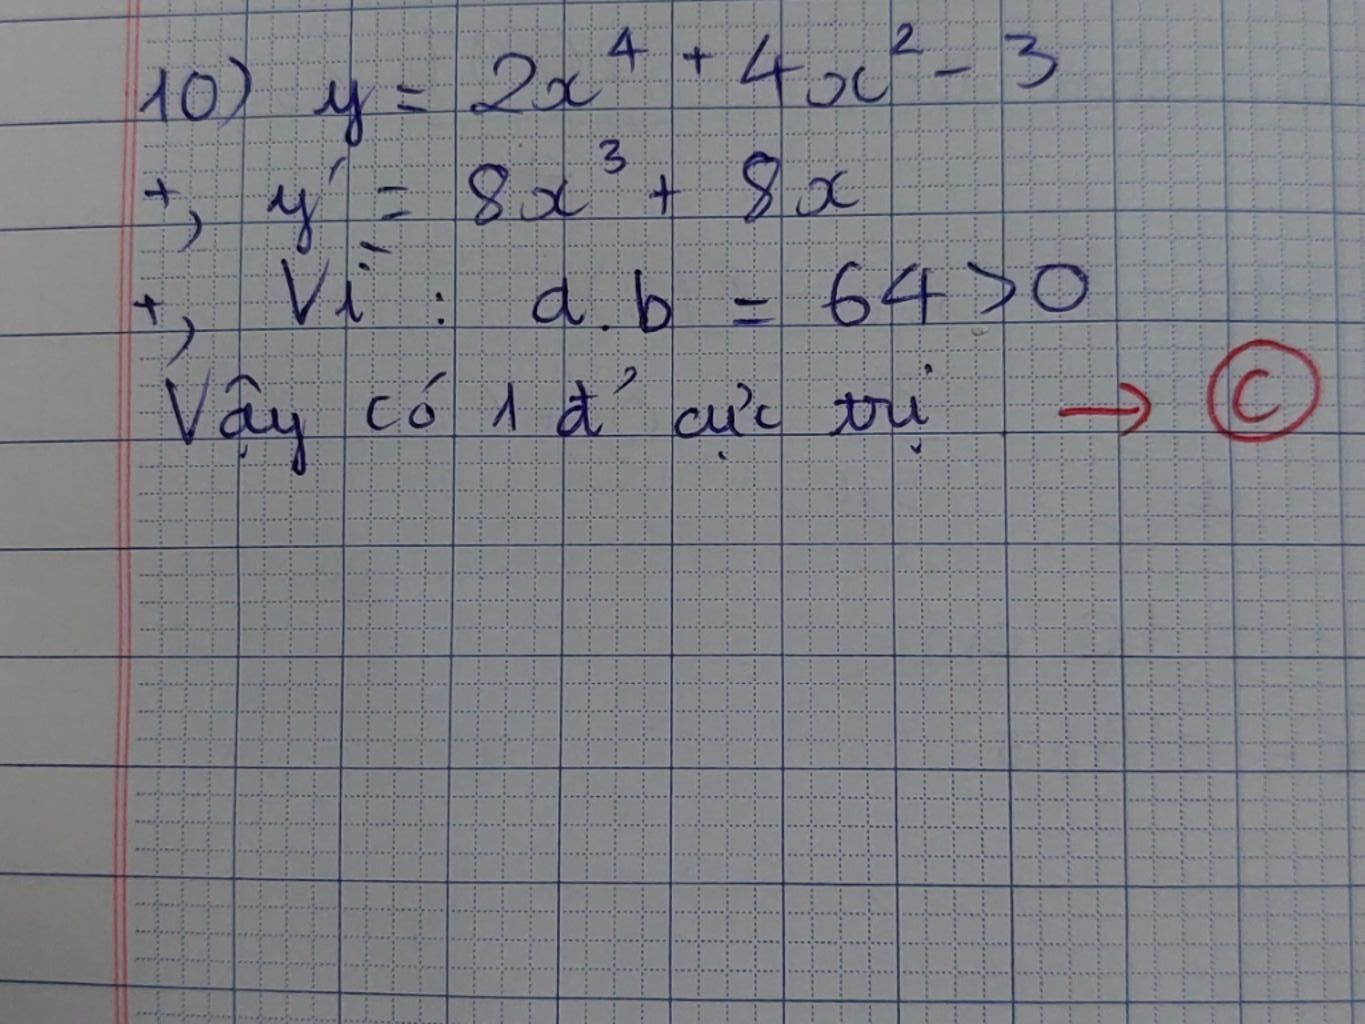 10) y = 2x⁴ + 4x² - 3
+, y' = 8x³ + 8x
+, Vì : a.b = 64 > 0
Vậy có 1 đ' cực trị → C